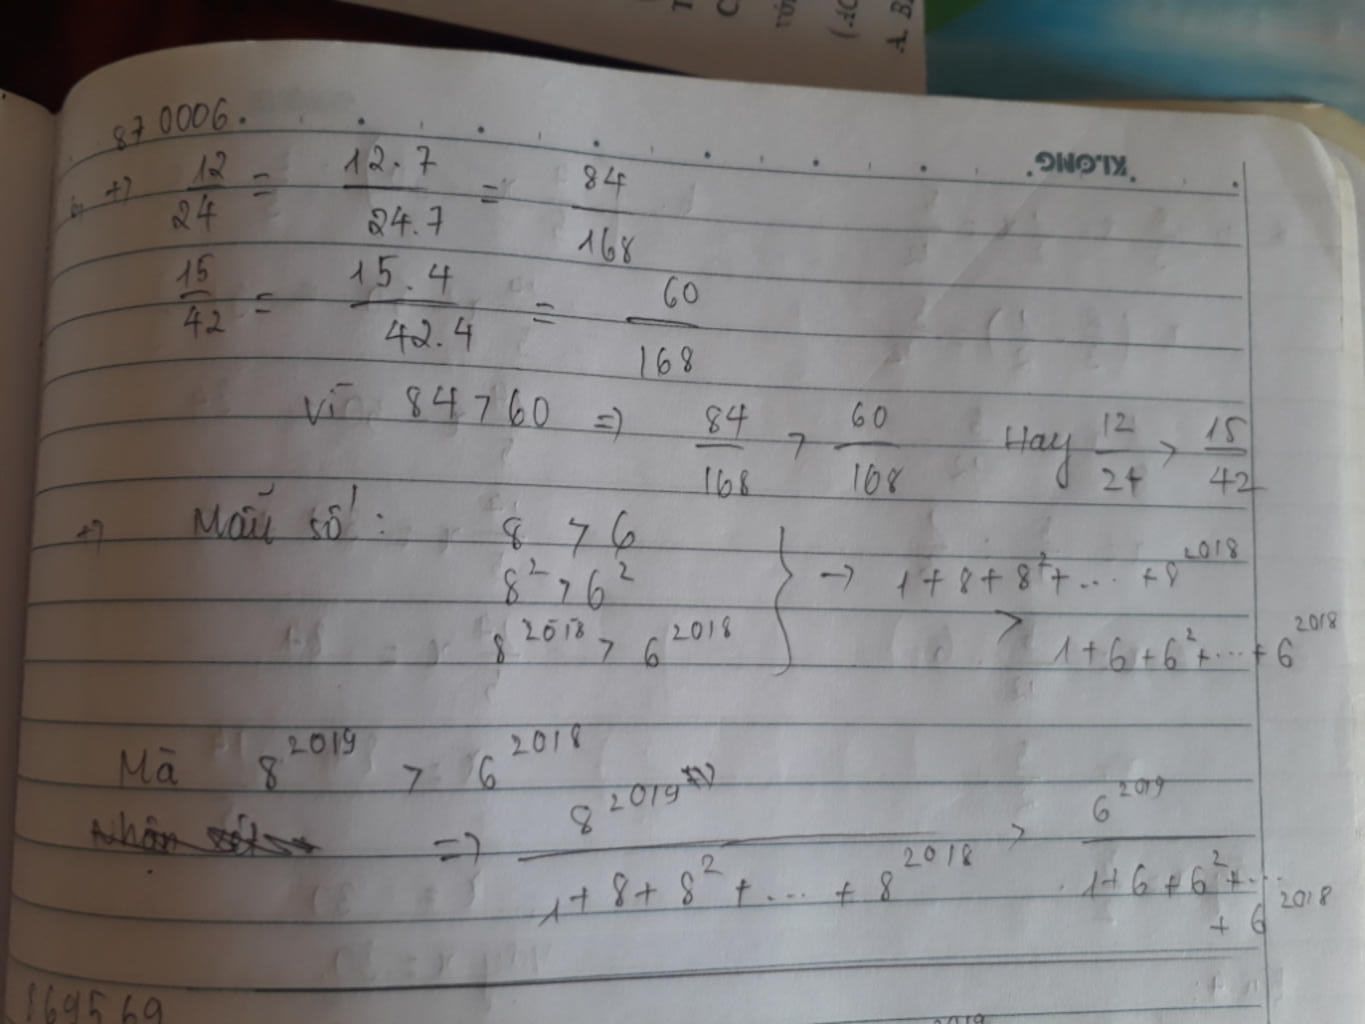 870006
+) 12/24 = 12.7/24.7 = 84/168
15/42 = 15.4/42.4 = 60/168
Vì 84 > 60 => 84/168 > 60/168 Hay 12/24 > 15/42
+) Mẫu số: 8 > 6
8^2 > 6^2
8^2018 > 6^2018
-> 1 + 8 + 8^2 + ... + 8^2018
> 1 + 6 + 6^2 + ... + 6^2018
Mà 8^2019 > 6^2018
=> 8^2019/(1 + 8 + 8^2 + ... + 8^2018) > 6^2019/(1 + 6 + 6^2 + ... + 6^2018)
169569
KLONG